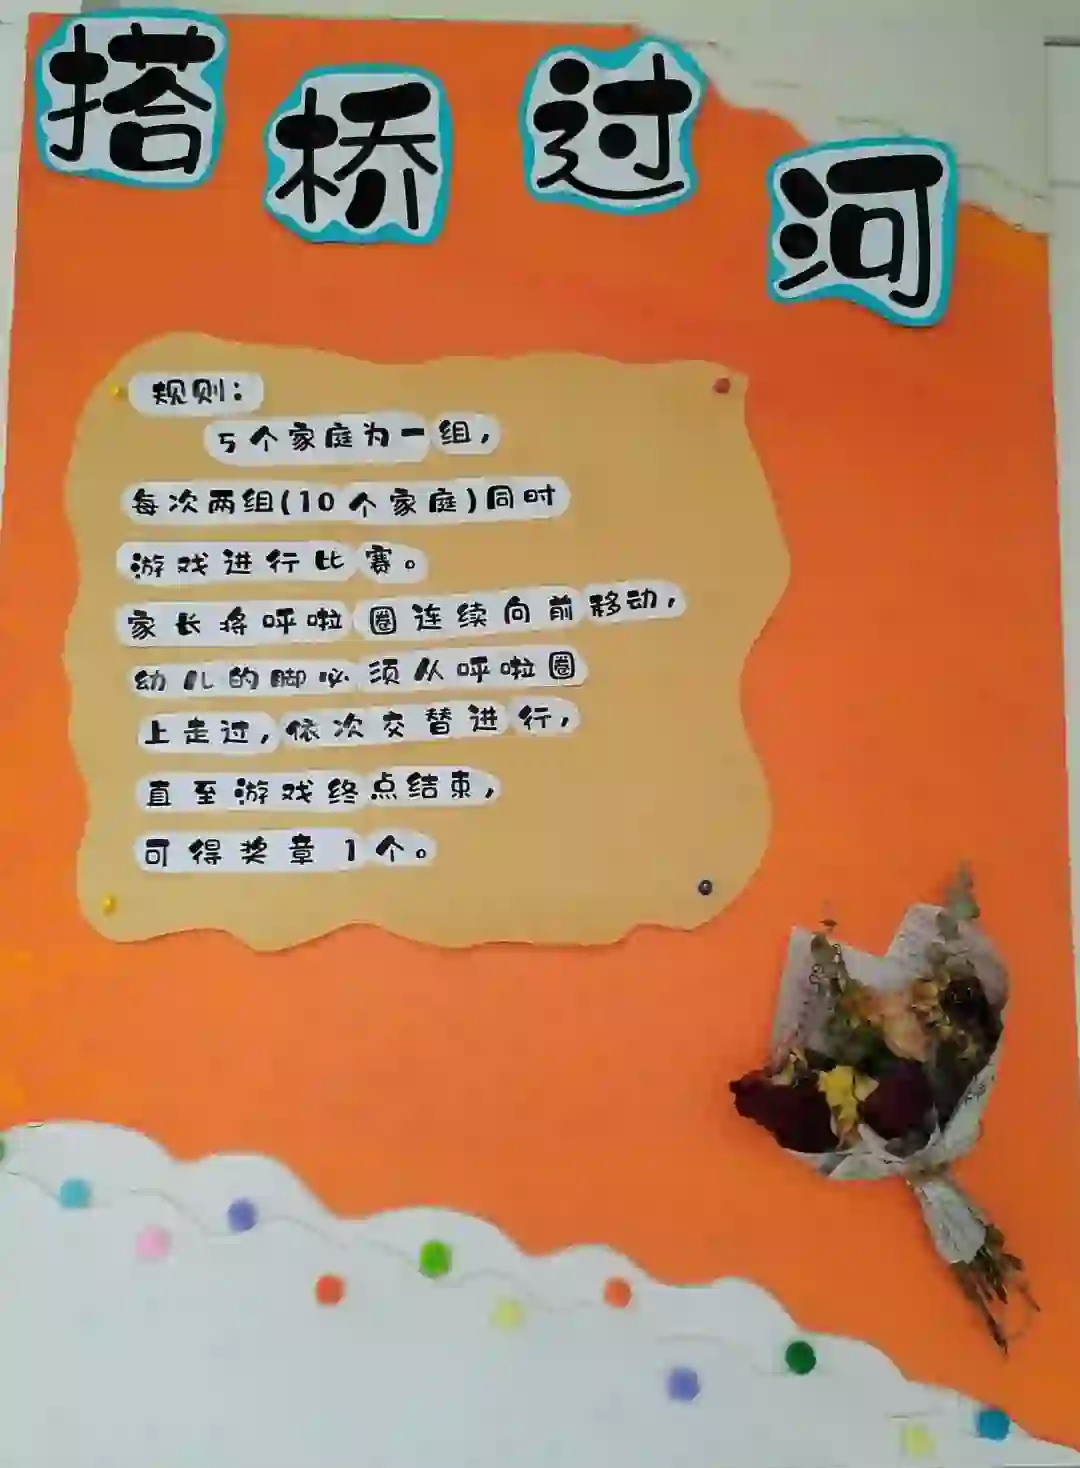 搭桥过河
规则：
5个家庭为一组，
每次两组(10个家庭)同时
游戏进行比赛。
家长将呼啦圈连续向前移动，
幼儿的脚必须从呼啦圈
上走过，依次交替进行，
直至游戏终点结束，
可得奖章1个。